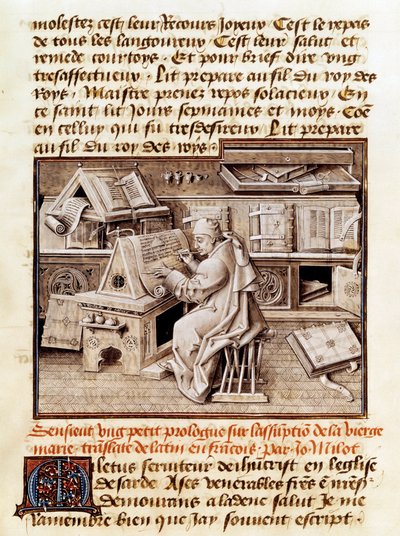 molestez cest leur Recours Joyeux Cest le repos
de tous les langoureux Cest leur salut et
remede courtoys. Et pour brief dire ung
tresaffectueux. Lit prepare au fil du roy des
Roys. Maistre prenez repos solacieux En
ce saint lit Jours sepmaines et moys. Cõe
en celluy qui fu tresdesireux Lit prepare
au fil du roy des roys.
Sensieut ung petit prologue sur lassũptiõ de la vierge
marie trãslate de latin en francois. Par Jo. Milot
Mletus serviteur de ihucrist en leglise
de sarde. A ses venerables frẽs
demourans a salut Je me
Ramembre bien que Jay souvent escript.